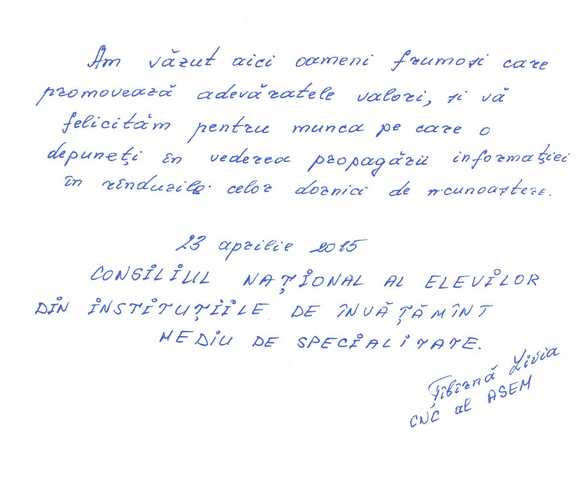 Am văzut aici oameni frumoși care
promovează adevăratele valori, și vă
felicităm pentru munca pe care o
depuneți în vederea propagării informației
în rîndurile celor dornici de cunoaștere.
23 aprilie 2015
CONSILIUL NAȚIONAL AL ELEVILOR
DIN INSTITUȚIILE DE ÎNVĂȚĂMÎNT
MEDIU DE SPECIALITATE.
Țîbîrnă Livia
CNC al ASEM